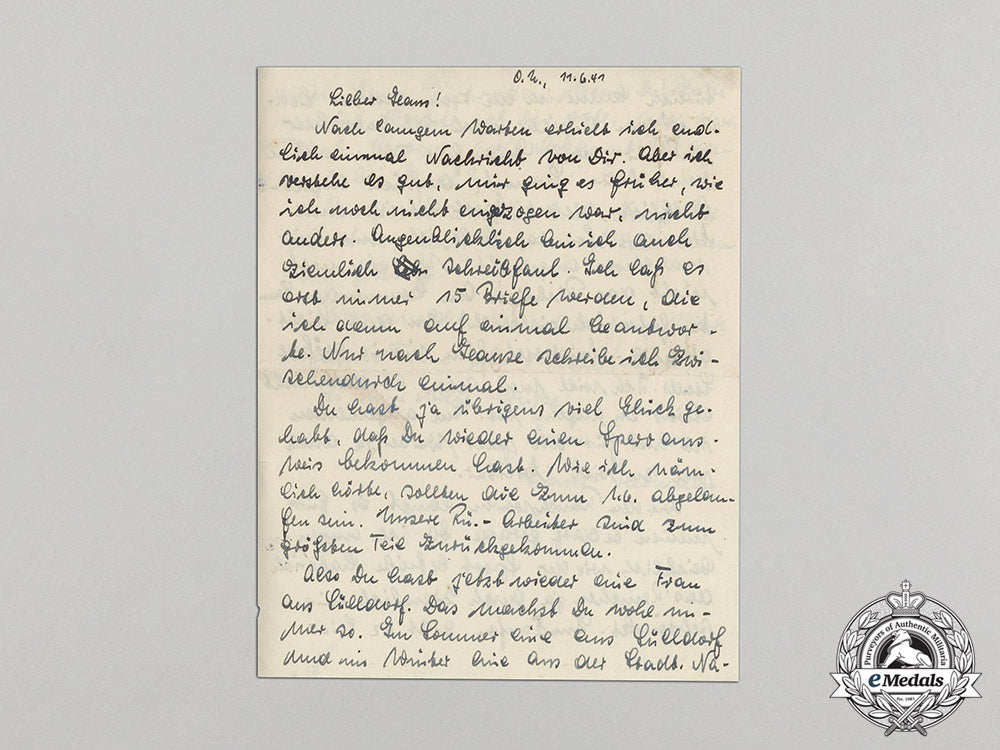 O.U., 11.6.41
Lieber Hans!
Nach langem Warten erhielt ich end-
lich einmal Nachricht von Dir. Aber ich
verstehe es gut, mir ging es früher, wie
ich noch nicht eingezogen war, nicht
anders. Augenblicklich bin ich auch
ziemlich schreibfaul. Ich laß es
erst immer 15 Briefe werden, die
ich dann auf einmal beantwor-
te. Nur nach Hause schreibe ich zwi-
schendurch einmal.
Du hast ja übrigens viel Glück ge-
habt, daß Du wieder einen Sperraus-
weis bekommen hast. Wie ich näm-
lich hörte, sollten die zum 1.6. abgelau-
fen sein. Unsere Rü.-Arbeiter sind zum
größten Teil zurückgekommen.
Also Du hast jetzt wieder eine Frau
aus Lülldorf. Das machst Du wohl im-
mer so. Im Sommer eine aus Lülldorf
und im Winter eine aus der Stadt. Na-
Purveyors of Authentic Militaria
eMedals
Est. 1985